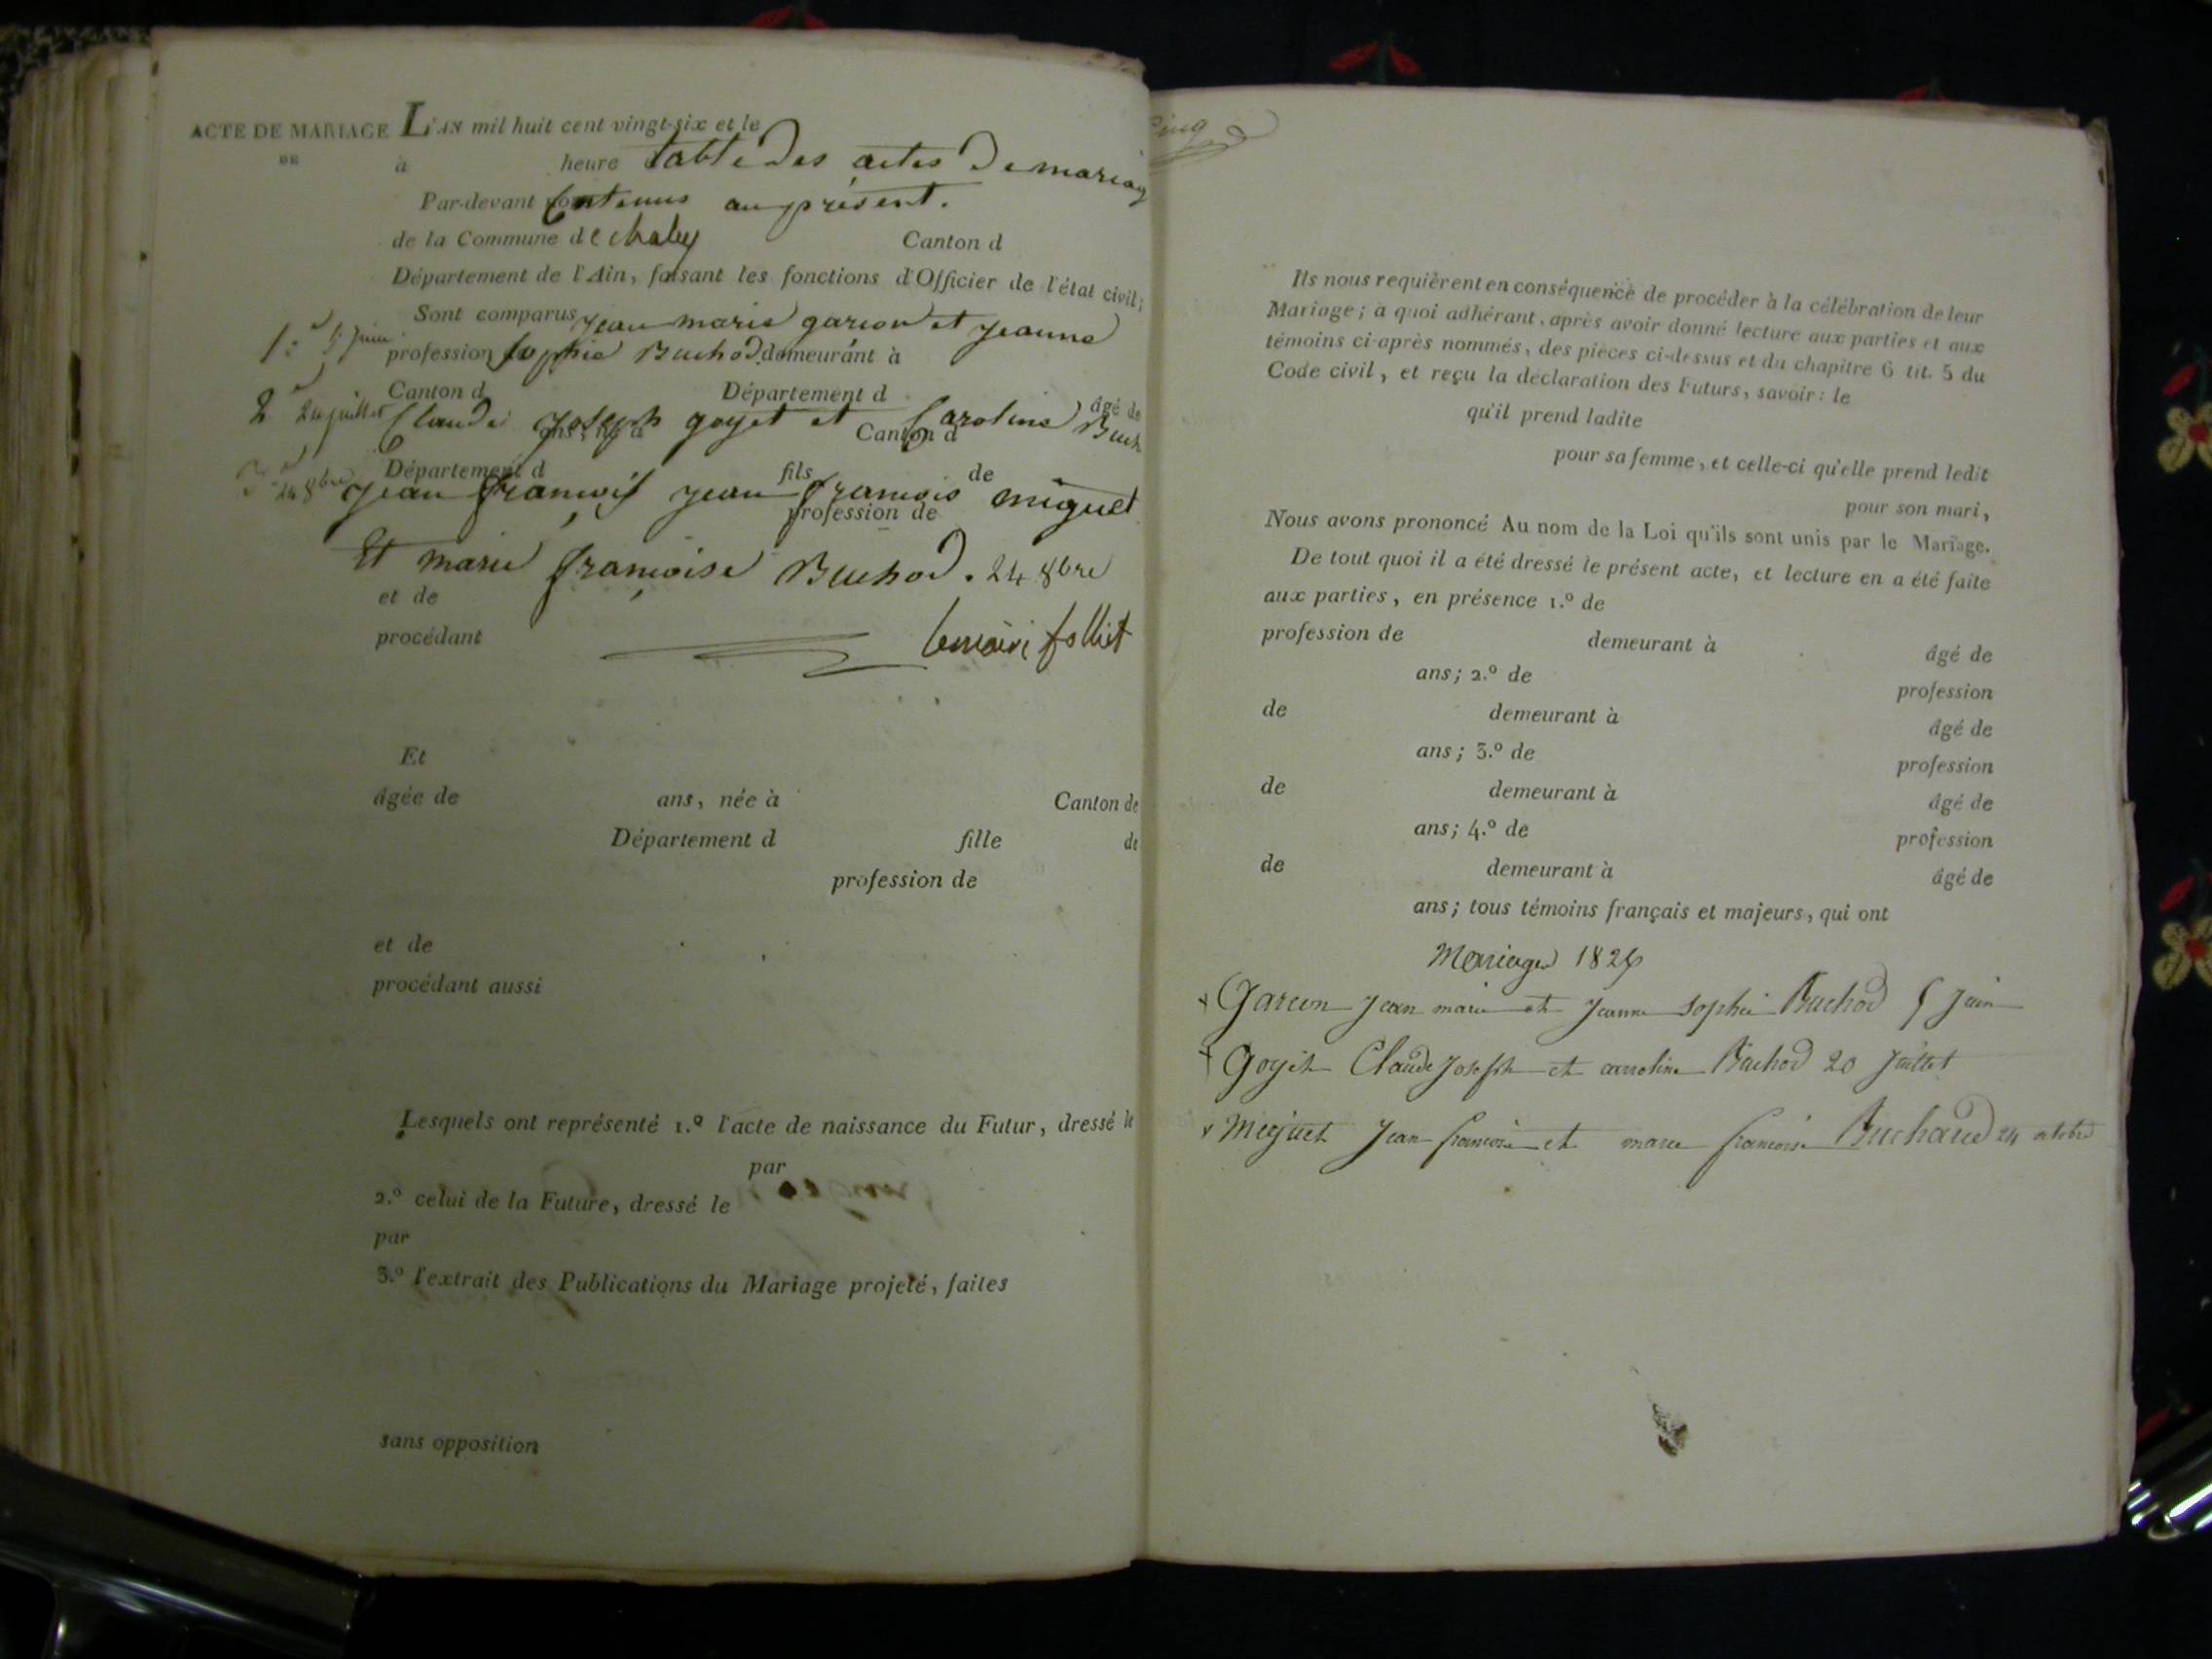 ACTE DE MARIAGE L'AN mil huit cent vingt-six et le
DE à heure table des actes De mariag
Par-devant Contenus au présent.
de la Commune de chaley Canton d
Département de l'Ain, faisant les fonctions d'Officier de l'état civil;
Sont comparus jean marie garson et jeanne
1: 5 juin profession Sophie Buchod demeurant à
Canton d Département d âgé de
2 juillet Claude joseph goyet et Caroline Buch
ans, né à Canton d
Département d fils de
24 8bre jean françois jean françois miguet
profession de
Et marie françoise Buchod. 24 8bre
et de
procédant folliet
Et
âgée de ans, née à Canton de
Département d fille de
profession de
et de
procédant aussi
Lesquels ont représenté 1.º l'acte de naissance du Futur, dressé le
par
2.º celui de la Future, dressé le
par
3.º l'extrait des Publications du Mariage projeté, faites
sans opposition
cinq
Ils nous requièrent en conséquence de procéder à la célébration de leur
Mariage; à quoi adhérant, après avoir donné lecture aux parties et aux
témoins ci-après nommés, des pièces ci-dessus et du chapitre 6 tit. 5 du
Code civil, et reçu la déclaration des Futurs, savoir: le
qu'il prend ladite
pour sa femme, et celle-ci qu'elle prend ledit
pour son mari,
Nous avons prononcé Au nom de la Loi qu'ils sont unis par le Mariage.
De tout quoi il a été dressé le présent acte, et lecture en a été faite
aux parties, en présence 1.º de
profession de demeurant à âgé de
ans; 2.º de profession
de demeurant à âgé de
ans; 3.º de profession
de demeurant à âgé de
ans; 4.º de profession
de demeurant à âgé de
ans; tous témoins français et majeurs, qui ont
Mariages 1826
Garcon Jean marie et Jeanne Sophie Buchod 5 Juin
Goyet Claude Joseph et caroline Buchod 20 Juillet
Miguet Jean francois et marie francoise Buchaud 24 octobre